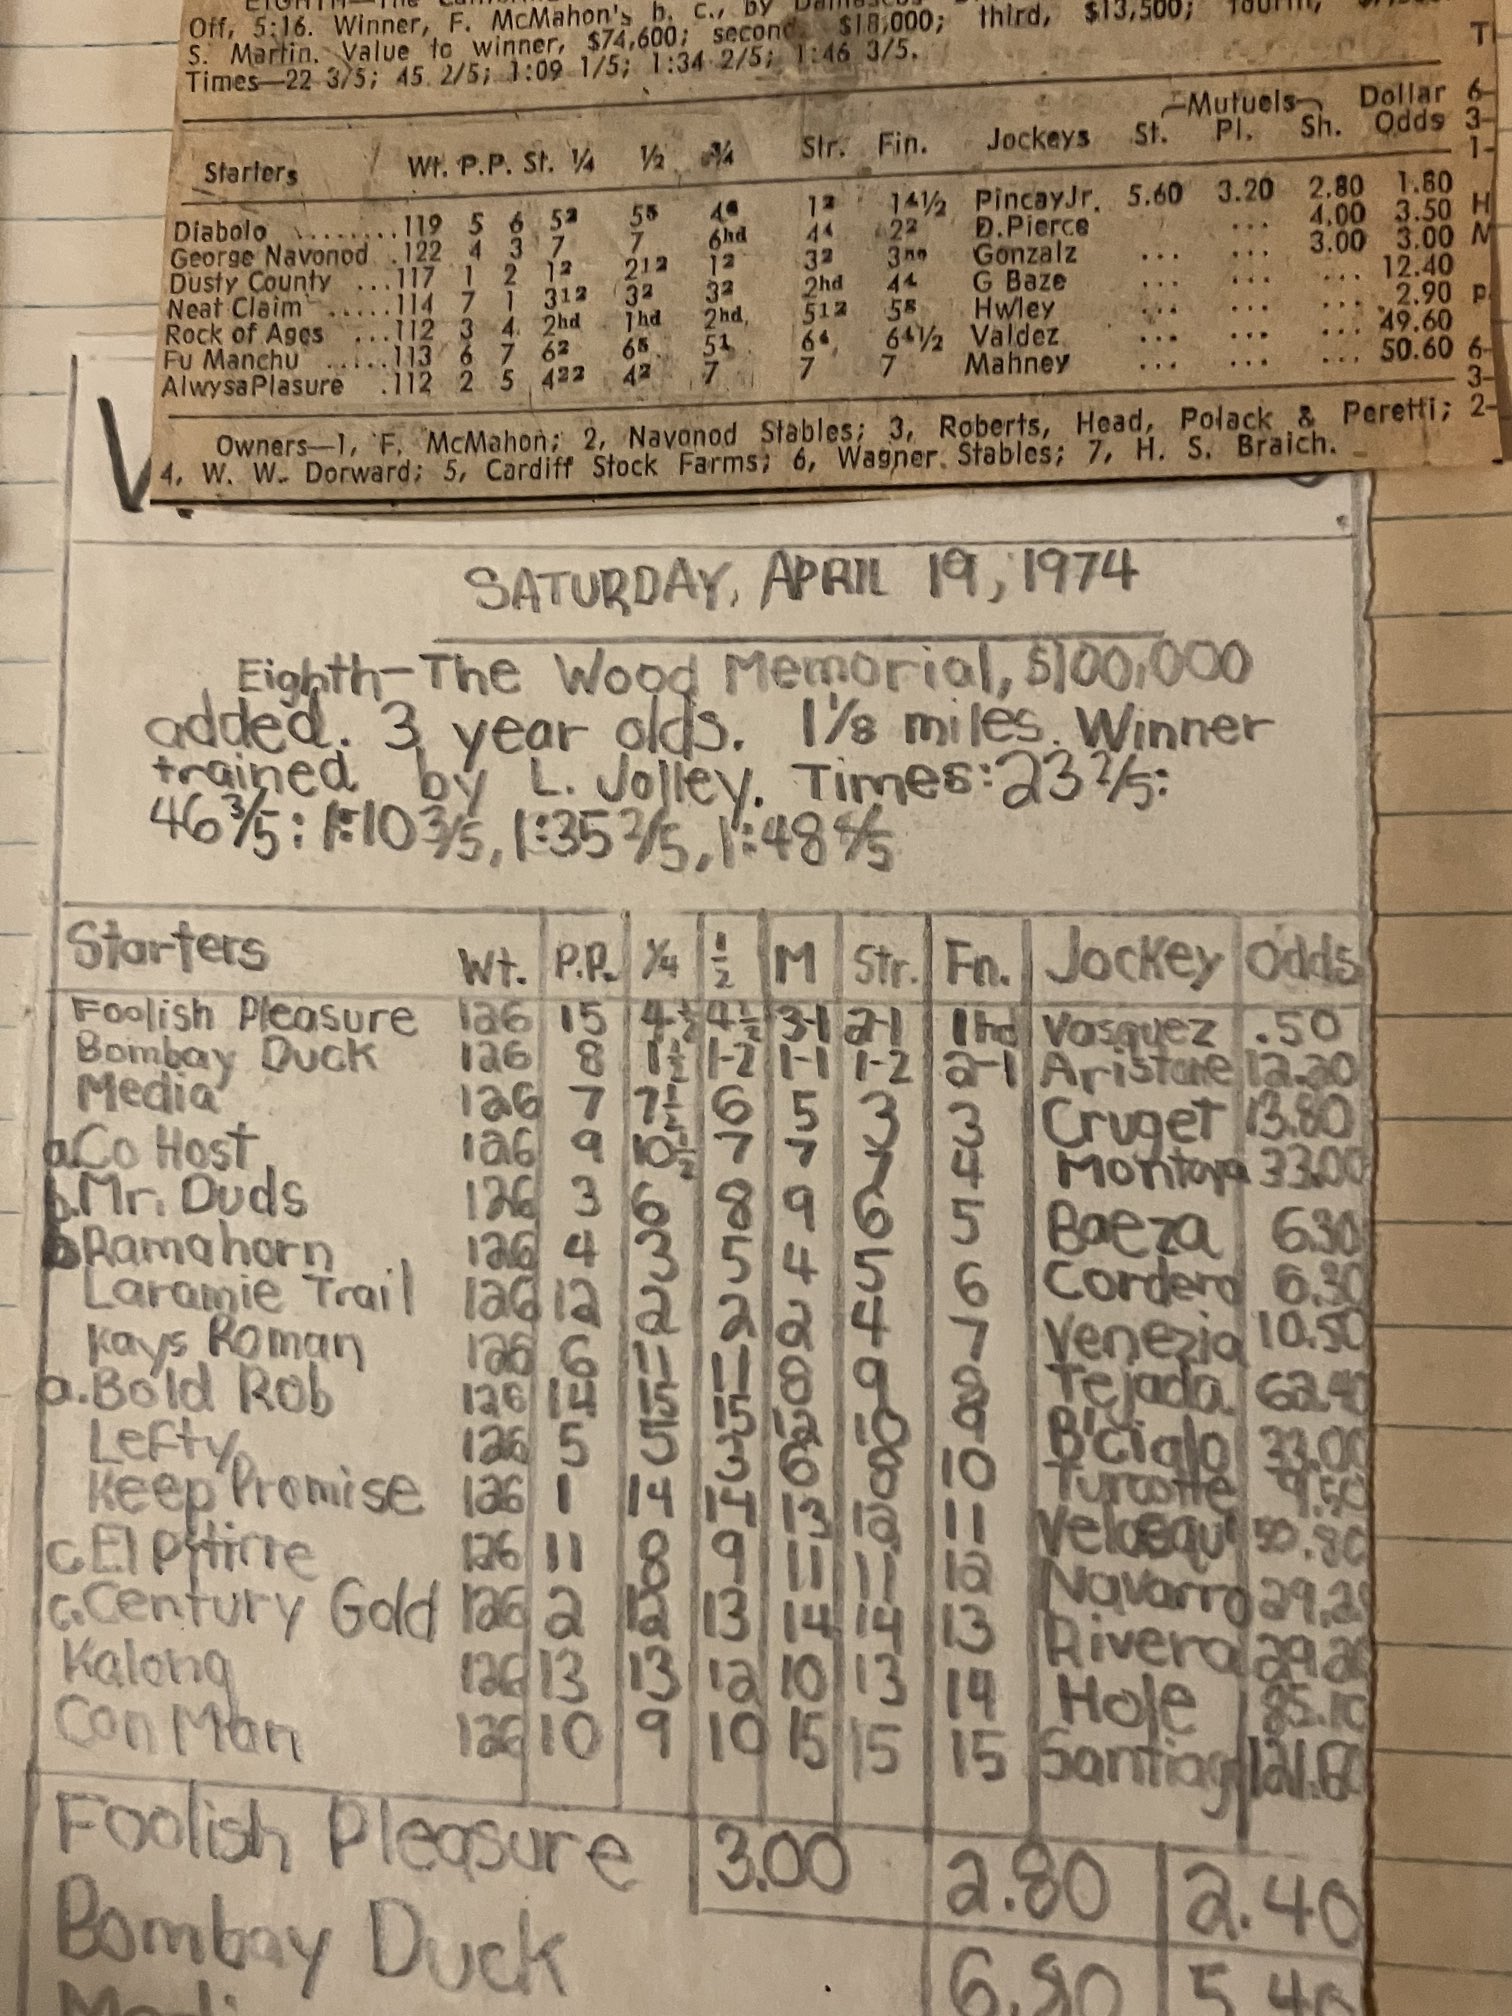 EIGHTH—The
Off, 5:16. Winner, F. McMahon's b. c., by Damascus
S. Martin. Value to winner, $74,600; second, $18,000; third, $13,500; fourth,
Times—22 3/5; 45 2/5; 1:09 1/5; 1:34 2/5; 1:46 3/5.
Mutuels Dollar
Starters Wt. P.P. St. ¼ ½ ¾ Str. Fin. Jockeys St. Pl. Sh. Odds
Diabolo ........119 5 6 5² 5⁵ 4⁶ 1² 1⁴½ PincayJr. 5.60 3.20 2.80 1.80
George Navonod .122 4 3 7 7 6hd 4⁴ 2² D.Pierce ... 4.00 3.50
Dusty County ...117 1 2 1² 2¹² 1² 3² 3ⁿᵒ Gonzalz ... ... 3.00 3.00
Neat Claim .....114 7 1 3¹² 3² 3² 2hd 4⁴ G Baze ... ... ... 12.40
Rock of Ages ...112 3 4 2hd 1hd 2hd 5¹² 5⁸ Hwley ... ... ... 2.90
Fu Manchu ......113 6 7 6² 6⁸ 5¹ 6⁴ 6⁴½ Valdez ... ... ... 49.60
AlwysaPlasure .112 2 5 4²² 4² 7 7 7 Mahney ... ... ... 50.60
Owners—1, F. McMahon; 2, Navonod Stables; 3, Roberts, Head, Polack & Peretti;
4, W. W. Dorward; 5, Cardiff Stock Farms; 6, Wagner Stables; 7, H. S. Braich.
SATURDAY, APRIL 19, 1974
Eighth—The Wood Memorial, $100,000
added. 3 year olds. 1⅛ miles. Winner
trained by L. Jolley. Times: 23 2/5:
46 3/5: 1:10 3/5, 1:35 2/5, 1:48 4/5
Starters Wt. P.P. ¼ ½ M Str. Fn. Jockey Odds
Foolish Pleasure 126 15 4½ 4½ 3-1 2-1 1hd Vasquez .50
Bombay Duck 126 8 1½ 1-2 1-1 1-2 2-1 Aristone 12.20
Media 126 7 7½ 6 5 3 3 Cruget 13.80
a.Co Host 126 9 10½ 7 7 7 4 Montoya 33.00
b.Mr. Duds 126 3 6 8 9 6 5 Baeza 6.30
b Ramahorn 126 4 3 5 4 5 6 Cordero 6.30
Laramie Trail 126 12 2 2 2 4 7 Venezia 10.50
Kays Roman 126 6 11 11 8 9 8 Tejada 62.40
a.Bold Rob 126 14 15 15 12 10 9 B'cialo 33.00
Lefty 126 5 5 3 6 8 10 Turcotte 9.50
Keep Promise 126 1 14 14 13 12 11 Velasqu 50.80
c.El Pitirre 126 11 8 9 11 11 12 Navarro 29.2
c.Century Gold 126 2 12 13 14 14 13 Rivera 29.20
Kalong 126 13 13 12 10 13 14 Hole 85.10
Con Man 126 10 9 10 15 15 15 Santiag 121.80
Foolish Pleasure 3.00 2.80 2.40
Bombay Duck 6.80 5.40